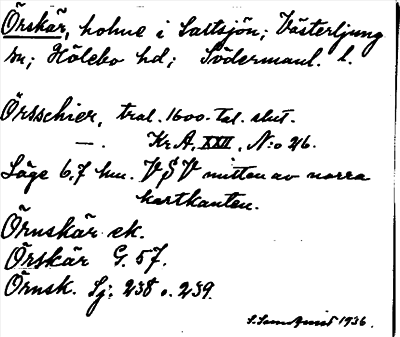 Örskär, holme i Saltsjön; Västerljung
sn; Hölebo hd; Södermanl. l.
Örsschier, tral. 1600-tal. slut.
—. Kr.A. XXII, N:o 26.
Läge 6,7 hm. VSV mitten av norra
kartkanten.
Örnskär ek.
Örskär G. 57.
Örnsk. Sj: 238 o. 239.
1936.